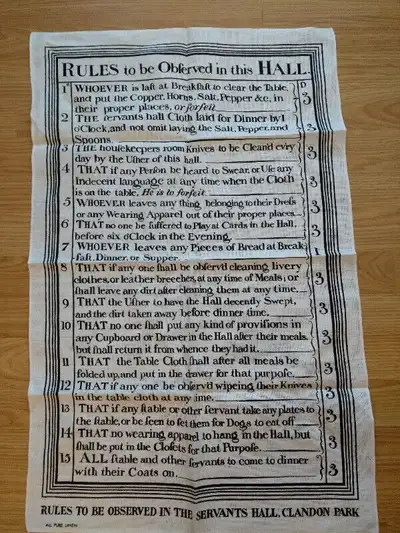 RULES to be Obſerved in this HALL.
D
1 WHOEVER is laſt at Breakfaſt to clear the Table,
and put the Copper, Horns, Salt, Pepper &c, in
their proper places, or forfeit 3
2 THE ſervants hall Cloth laid for Dinner by 1
o'Clock, and not omit laying the Salt, Pepper, and
Spoons. 3
3 THE houſekeepers room Knives to be Cleand evry
day by the Uſher of this hall. 3
4 THAT if any Perſon be heard to Swear, or Uſe any
Indecent language at any time when the Cloth
is on the table, He is to forfeit 3
5 WHOEVER leaves any thing, belonging to their Dreſs
or any Wearing Apparel out of their proper places 3
6 THAT no one be ſuffered to Play at Cards in the Hall,
before six o'Clock in the Evening. 3
7 WHOEVER leaves any Pieces of Bread at Break:
faſt, Dinner, or Supper. 1
8 THAT if any one ſhall be obſervd cleaning livery
clothes, or leather breeches, at any time of Meals; or
ſhall leave any dirt after cleaning them at any time. 3
9 THAT the Uſher to have the Hall decently Swept,
and the dirt taken away before dinner time. 3
10 THAT no one ſhall put any kind of proviſions in
any Cupboard or Drawer in the Hall after their meals,
but ſhall return it from whence they had it. 3
11 THAT the Table Cloth ſhall after all meals be
folded up, and put in the drawer for that purpoſe. 3
12 THAT if any one be obſervd wipeing their Knives
in the table cloth at any time. 3
13 THAT if any ſtable or other ſervant take any plates to
the ſtable, or be ſeen to ſet them for Dogs to eat off 3
14 THAT no wearing apparel to hang in the Hall, but
ſhall be put in the Cloſets for that Purpoſe. 3
15 ALL ſtable and other ſervants to come to dinner
with their Coats on. 3
RULES TO BE OBSERVED IN THE SERVANTS HALL, CLANDON PARK
ALL PURE LINEN